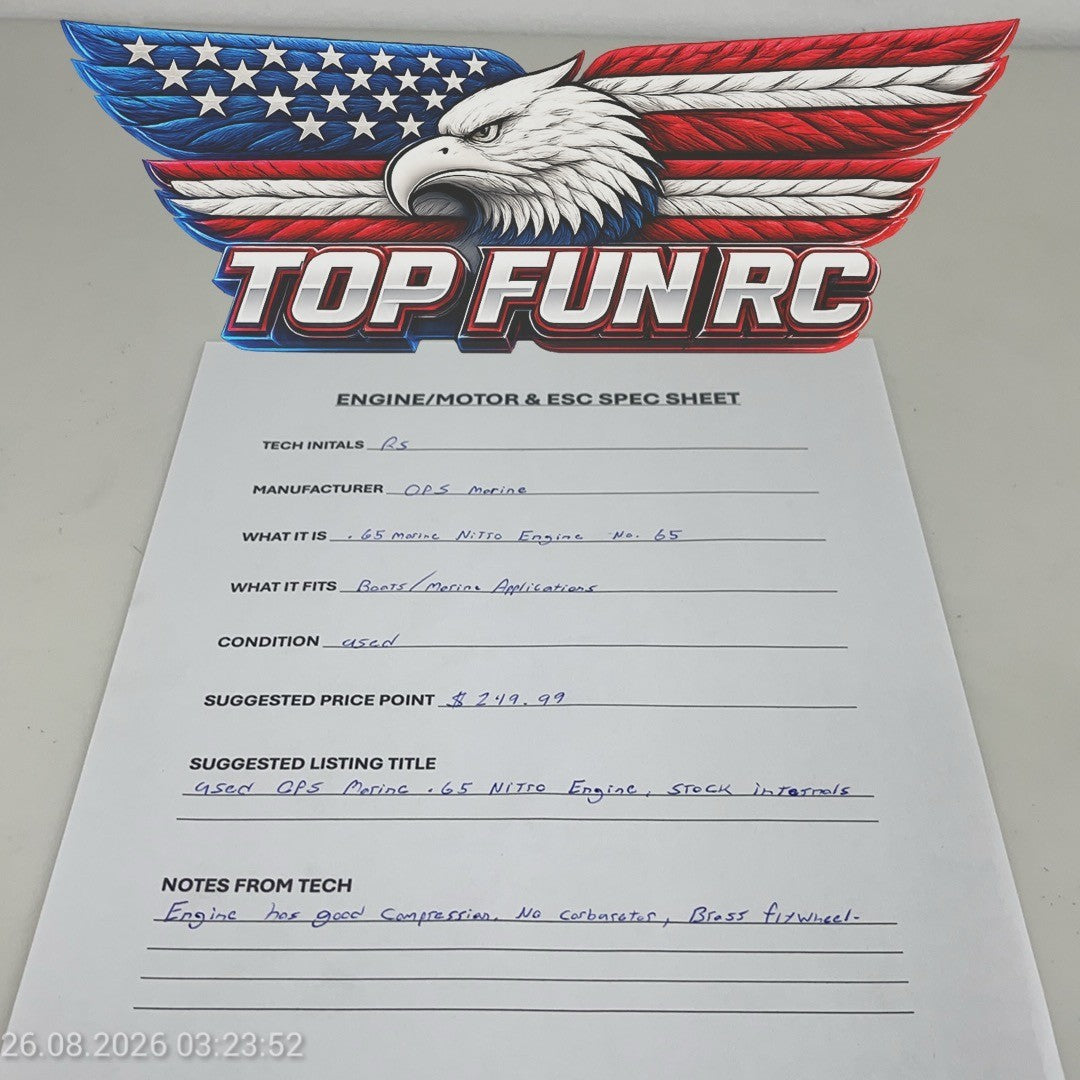 TOP FUN RC
ENGINE/MOTOR & ESC SPEC SHEET
TECH INITALS RS
MANUFACTURER OPS Marine
WHAT IT IS .65 Marine Nitro Engine No. 65
WHAT IT FITS Boats/Marine Applications
CONDITION used
SUGGESTED PRICE POINT $249.99
SUGGESTED LISTING TITLE
used OPS Marine .65 Nitro Engine, Stock internals
NOTES FROM TECH
Engine has good Compression. No carburetor, Brass flywheel-
26.08.2026 03:23:52